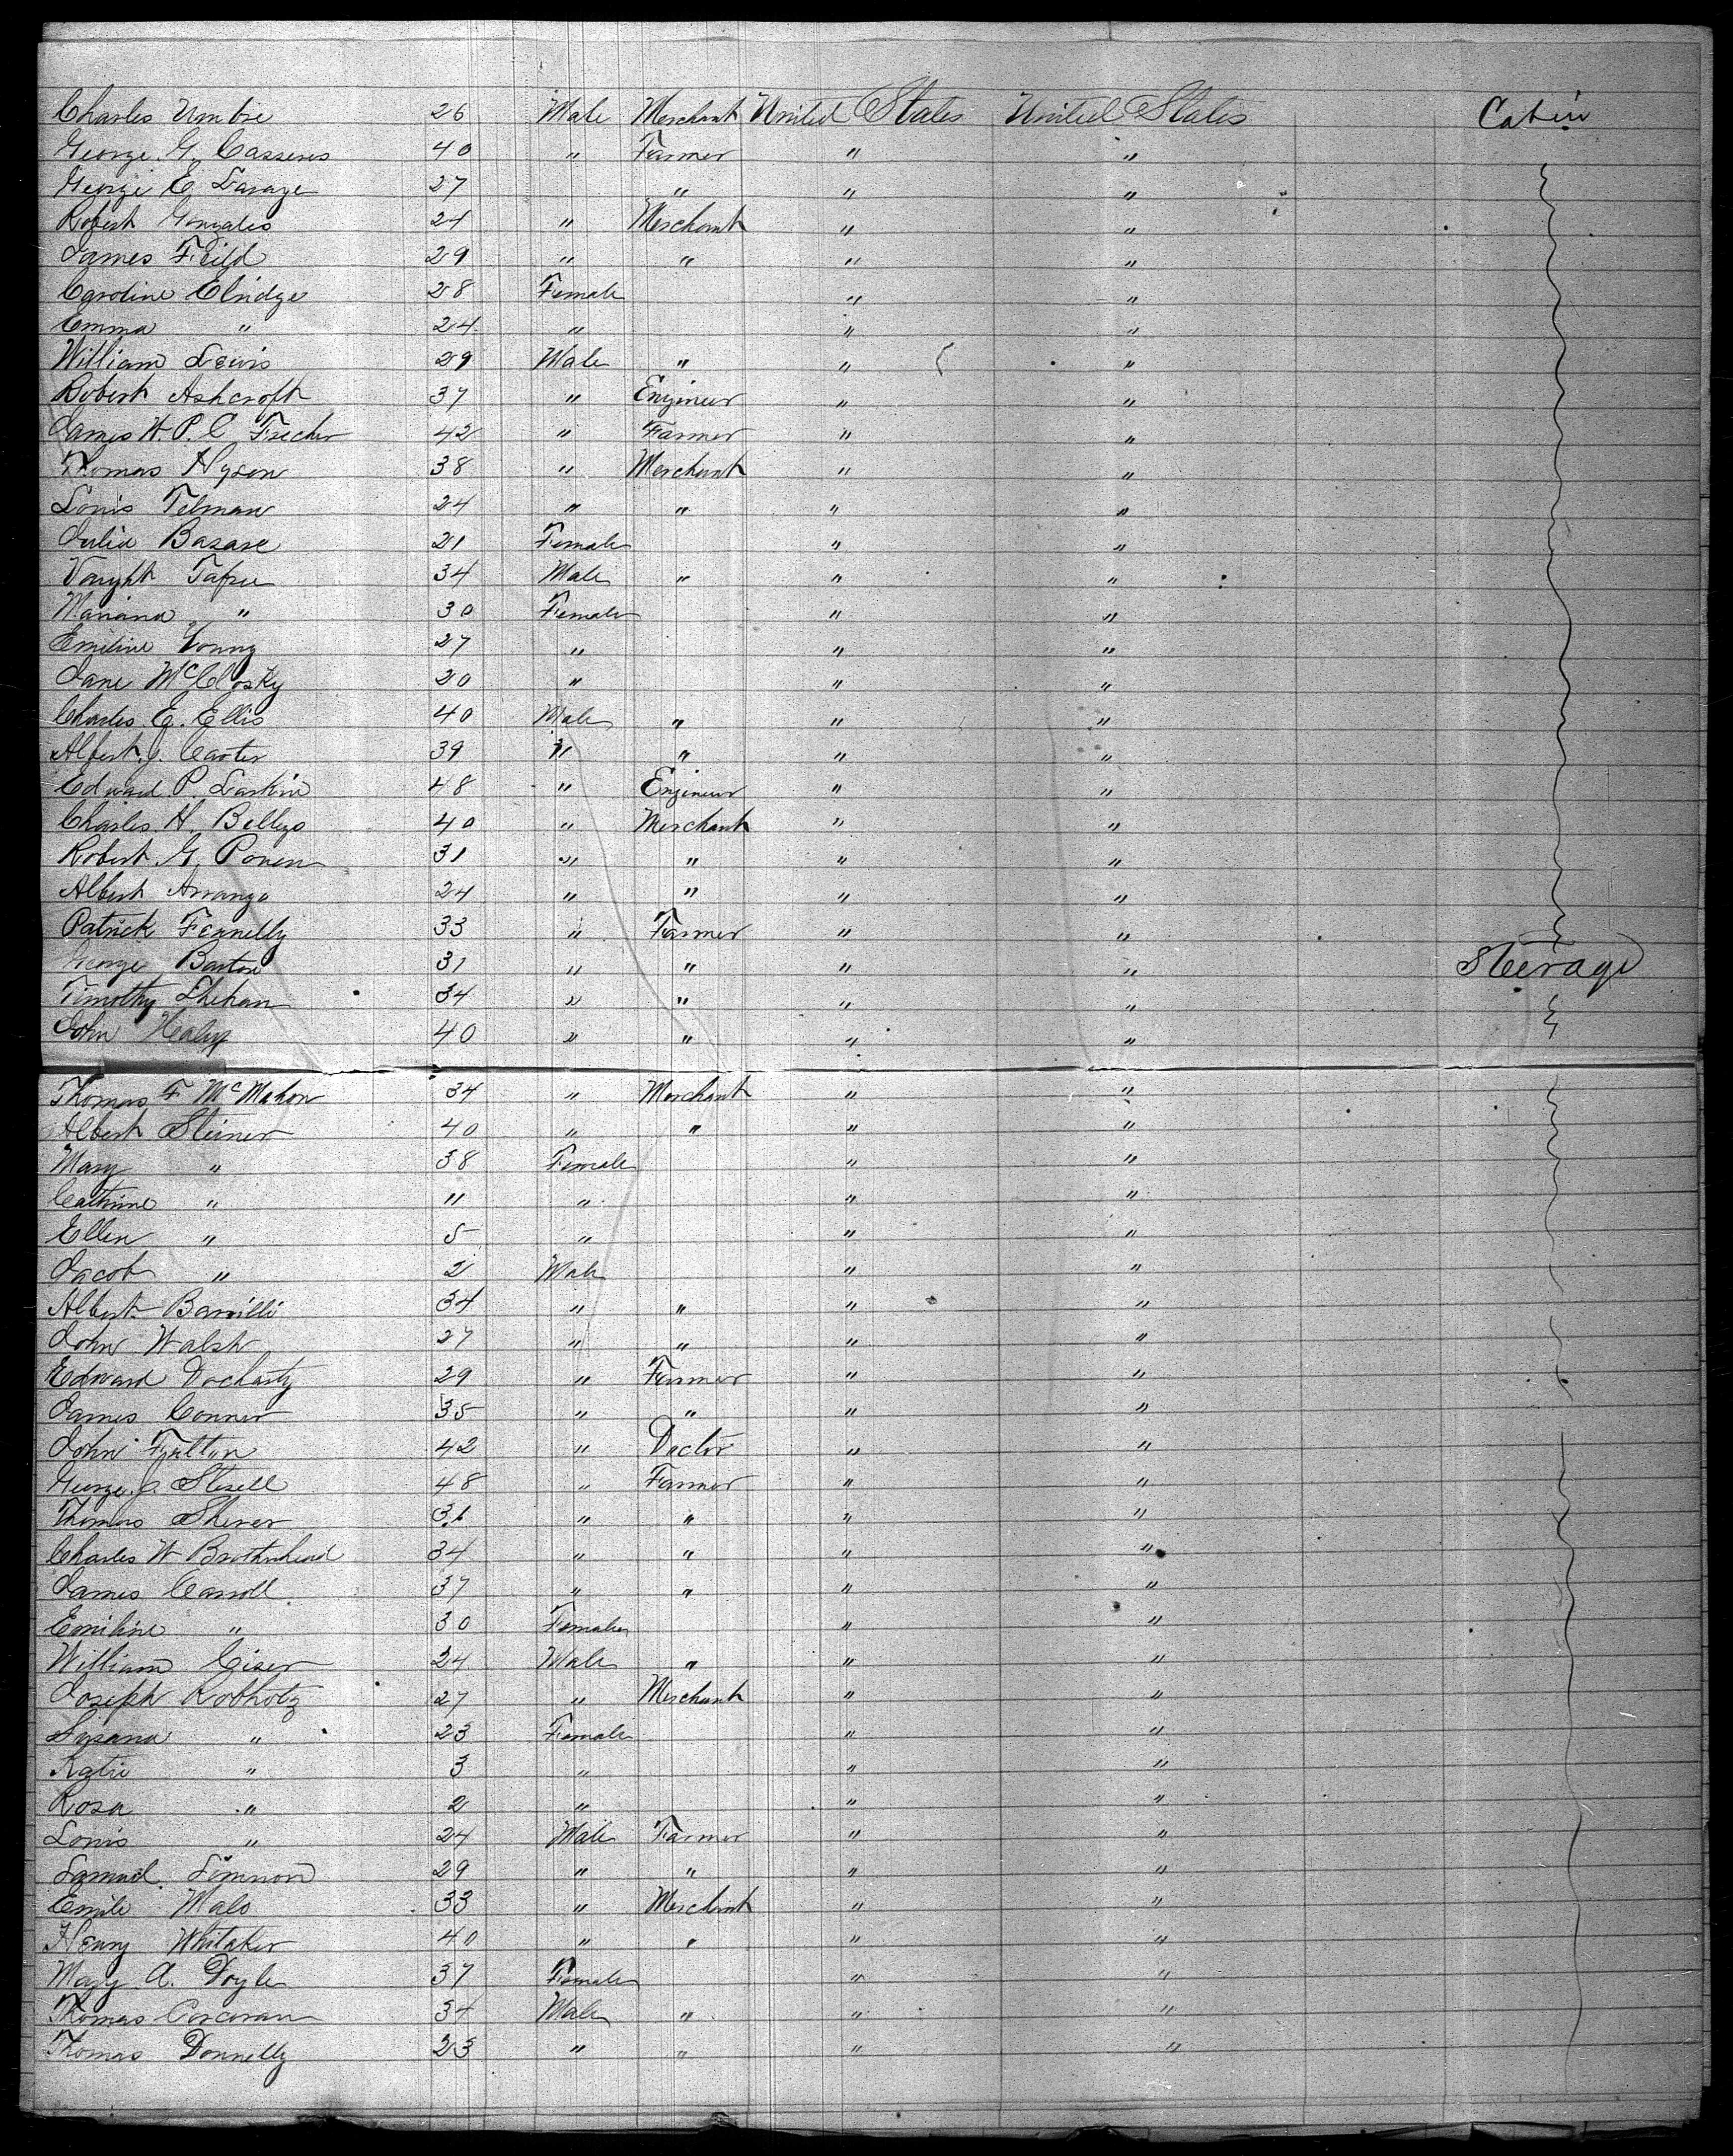 Charles Umbre 26 Male Merchant United States United States Cabin
George G. Casseres 40 " Farmer " "
George E Savage 27 " " "
Robert Gonzales 24 " Merchant " "
James Feild 29 " " " "
Caroline Elridge 28 Female " "
Emma " 24 " " "
William Lewis 29 Male " " "
Robert Ashcroft 37 " Engineer " "
James W. P. C 42 " Farmer " "
Thomas Nyson 38 " Merchant " "
Louis Telman 24 " " " "
Julia 21 Female " "
34 Male " " "
Mariana " 30 Female " "
Emiline Young 27 " " "
Jane McClosky 20 " " "
Charles E. Ellis 40 Male " " "
Albert J. Carter 39 " " " "
Edward P. Larkin 48 " Engineer " "
Charles H. 40 " Merchant " "
Robert G. 31 " " " "
Albert Arrango 24 " " " "
Patrick Fennelly 33 " Farmer " "
George 31 " " " " Steerage
Timothy Shehan 34 " " " "
John Healy 40 " " " "
Thomas F McMahon 34 " Merchant " "
Albert Steiner 40 " " " "
Mary " 38 Female " "
Cathrine " 11 " " "
Ellen " 5 " " "
Jacob " 2 Male " "
Albert 34 " " " "
John Walsh 27 " " " "
Edward Docharty 29 " Farmer " "
James Conner 35 " " " "
John Fulton 42 " Doctor " "
George J. 48 " Farmer " "
Thomas Sherer " " " "
Charles W Brotherhead 34 " " " "
James Carroll 37 " " " "
Emiline " 30 Female " "
William Ciser 24 Male " " "
Joseph Robholtz 27 " Merchant " "
Susana " 23 Female " "
Katie " 3 " " "
Rosa " 2 " " "
Louis " 24 Male Farmer " "
Samuel 29 " " " "
Emile Malo 33 " Merchant " "
Henry Whitaker 40 " " " "
Mary A. Doyle 37 Female " "
Thomas Corcoran 34 Male " " "
Thomas Donnelly 23 " " " "